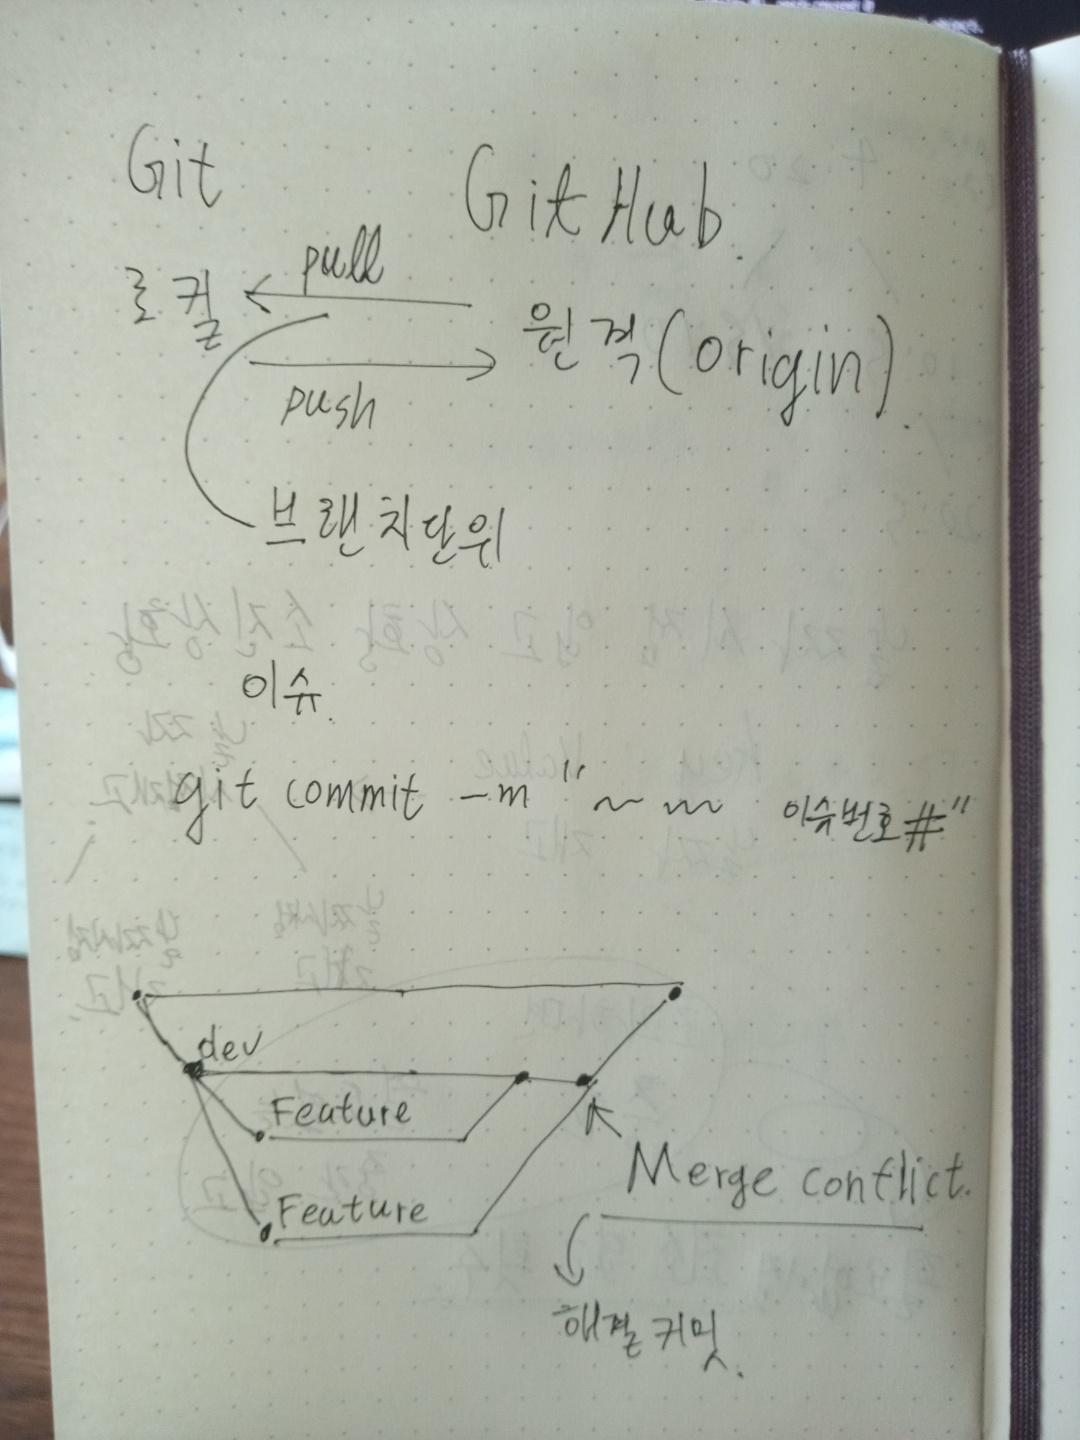 Git
GitHub.
pull
로컬
원격(origin).
push
브랜치단위
이슈.
git commit -m "~ ~~ 이슈번호#"
dev
Feature
Feature
Merge conflict.
해결 커밋.